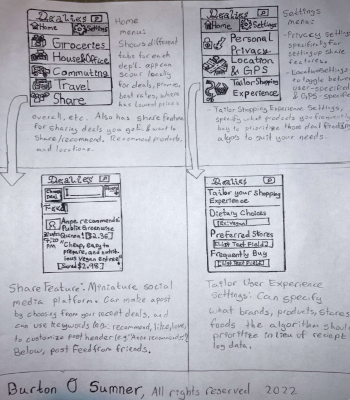 Dealies
Home Settings
Groceries
House & Office
Commuting
Travel
Share
Home
menu:
Shows different
tabs for each
dept., app can
scour locally
for deals, promo,
best rates, where
has lowest prices
overall, etc. Also has share feature
for sharing deals you get & want to
share/recommend. Recommend products,
and locations.
Dealies
Home Settings
Personal
Privacy
Location
& GPS
Tailor Shopping
Experience
Settings
menu:
- Privacy settings
specifically for
setting up share
features
- Location settings
to toggle between
user-specified
& GPS-specified
- Tailor Shopping Experience Settings,
specify what products you frequently
buy to prioritize those deal feeds
algos to suit your needs.
Dealies
Feed
Anne recommends:
Public Greenwise
Quorn at [$2.36]
"Cheap, easy to
prepare, and nutrit-
ious vegan entree"
[Saved $2.98]
Share Feature: Miniature social
media platform. Can make a post
by choosing from your recent deals, and
can use keywords (e.g.: recommend, like, love)
to customize post header (e.g. "Anne recommends")
Below, post feed from friends.
Dealies
Tailor your Shopping
Experience
Dietary Choices
Vegan
Preferred Stores
[List Text Field]
Frequently Buy
[List Text Field]
Tailor User Experience
Settings: Can specify
what brands, products, stores,
foods the algorithm should
prioritize in lieu of receipt
log data.
Burton O Sumner, All rights reserved 2022